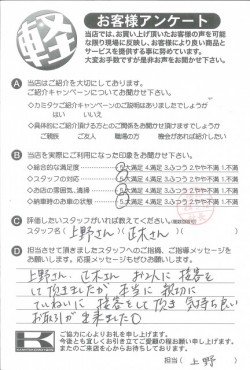 軽
お客様アンケート
当店では、お買い上げ頂いたお客様の声を可能
な限り現場に反映し、お客様により良い商品と
サービスを提供する事に努めています。
大変お手数ですが是非お声をお聞かせ下さい。
A 当店はご紹介を大切にしております。
ご紹介キャンペーンについてお聞かせ下さい。
◇カミタケご紹介キャンペーンのご説明はありましたでしょうか
はい いいえ
◇具体的にご紹介頂ける方とのご関係をお聞かせ頂けますでしょうか
ご親族 ご友人 職場の方 機会があれば紹介したい
B 当店を実際にご利用になった印象をお聞かせ下さい。
◇総合的な満足度 5.大満足 4.満足 3.ふつう 2.やや不満 1.不満
◇スタッフの対応 5.大満足 4.満足 3.ふつう 2.やや不満 1.不満
◇お店の雰囲気、清掃 5.大満足 4.満足 3.ふつう 2.やや不満 1.不満
◇納車時のお車の状態 5.大満足 4.満足 3.ふつう 2.やや不満 1.不満
C 評価したいスタッフがいれば教えてください。
スタッフ名(上野さん)(正木さん)
D 担当させて頂きましたスタッフへのご指摘、ご指導メッセージを
お願いします。応援メッセージもぜひお願いします。
上野さん、正木さん お2人に接客を
して頂きましたが 本当に 親切に
ていねいに 接客をして頂き 気持ち良い
お取引が出来ました
K
ご協力に心よりお礼を申し上げます。
今後とも宜しくお引き立てご愛顧の程お願い申し上げます。
またのご来店を心からお待ちしております。
担当(上野)